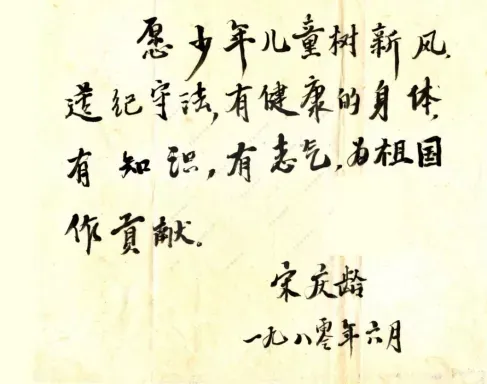 愿少年儿童树新风，
遵纪守法，有健康的身体，
有知识，有志气，为祖国
作贡献。
宋庆龄
一九八零年六月